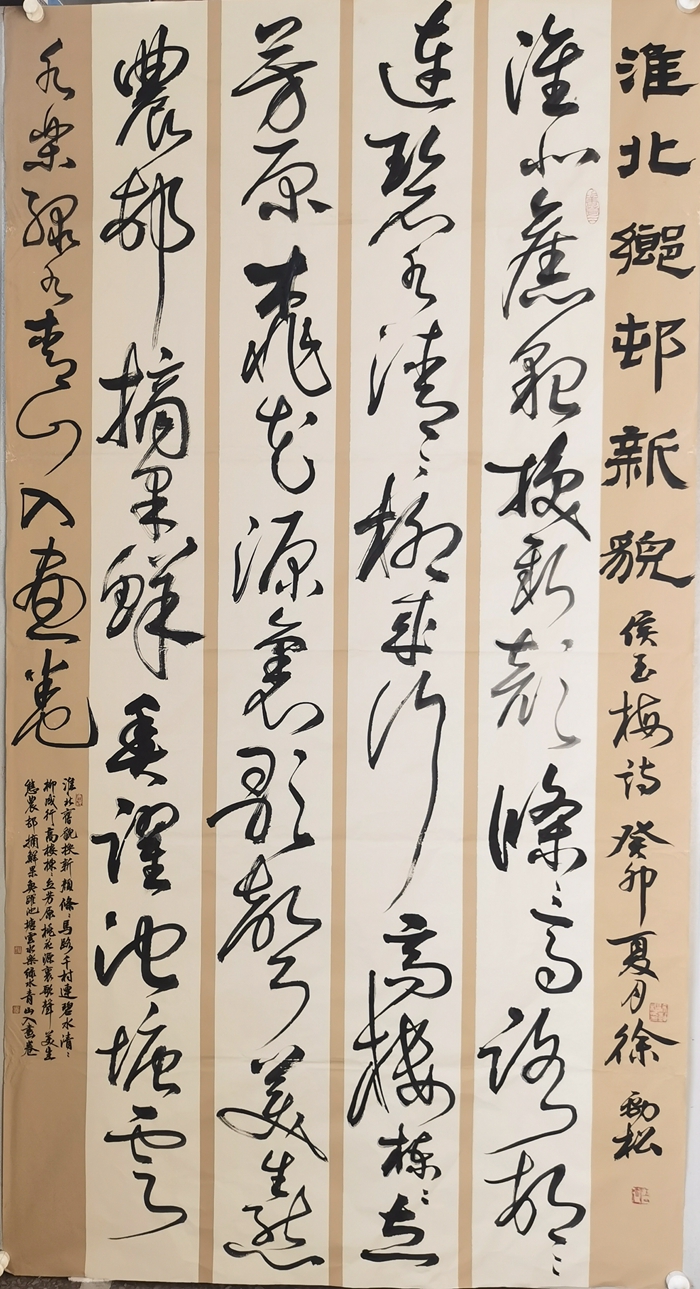 淮北鄉邨新貌 侯玉梅詩 癸卯夏月徐勁松
淮北舊貌換新顏條〻馬路邨〻
連碧水清〻柳成行高樓棟〻立
芳原桃花源裏歌聲美生態
農邨摘果鮮魚躍池塘雲
水樂綠水青山入畫卷
淮北舊貌換新顏條〻馬路千村連碧水清〻
柳成行高樓棟立芳原桃花源裏歌聲美生
態農邨摘鮮果魚躍池塘雲水樂綠水青山入畫卷